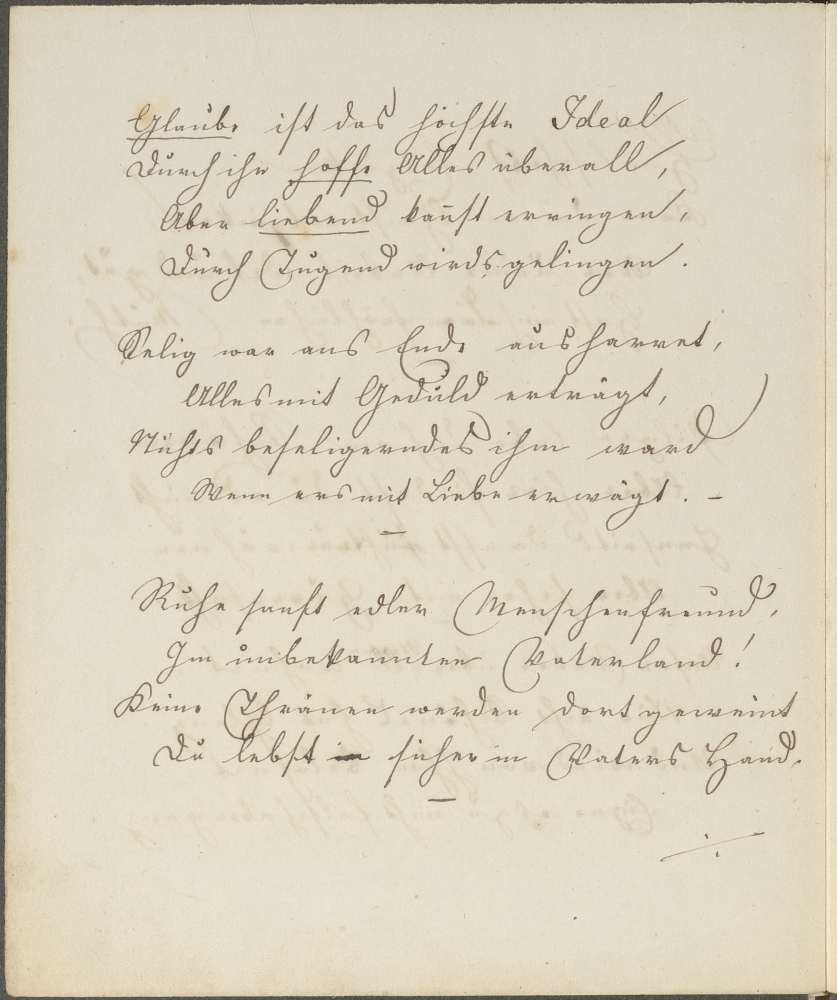 Glaube ist das höchste Ideal
Durch ihn hoffe Alles überall,
Aber liebend kannst erringen,
Durch Tugend wirds gelingen.
Selig wer ans Ende ausharret,
Alles mit Geduld erträgt,
Nichts beseligerndes ihm ward
Wenn ers mit Liebe erwägt. –
–
Ruhe sanft edler Menschenfreund,
Im unbekannten Vaterland!
Keine Thränen werden dort geweint
Du lebst sicher in Vaters Hand.
–